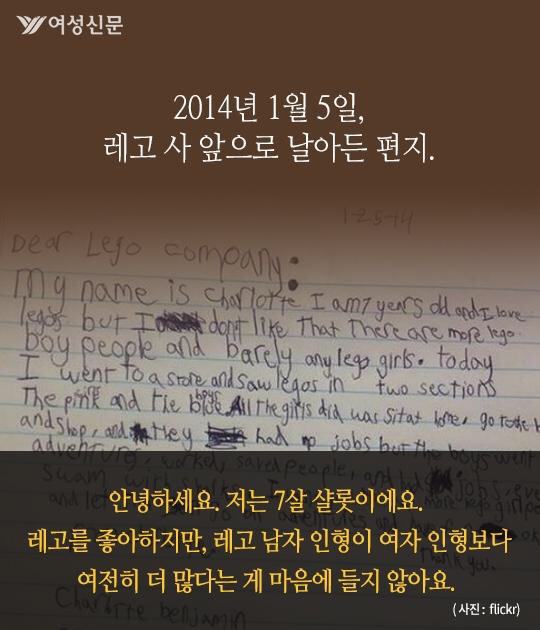 여성신문
2014년 1월 5일,
레고 사 앞으로 날아든 편지.
1-25-14
Dear Lego company:
My name is Charlotte I am 7 years old and I love
legos but I dont like That There are more lego
boy people and barely any lego girls. today
I went to a store and saw legos in two sections
The pink and the blue. All the girls did was sit at home, go to the b
and shop, and they had no jobs but the boys went
adventures, worked, saved people, and had jobs, eve
swam with sharks.
and let adventures and
Thank you.
Charlotte benjamin
안녕하세요. 저는 7살 샬롯이에요.
레고를 좋아하지만, 레고 남자 인형이 여자 인형보다
여전히 더 많다는 게 마음에 들지 않아요.
( 사진 : flickr)